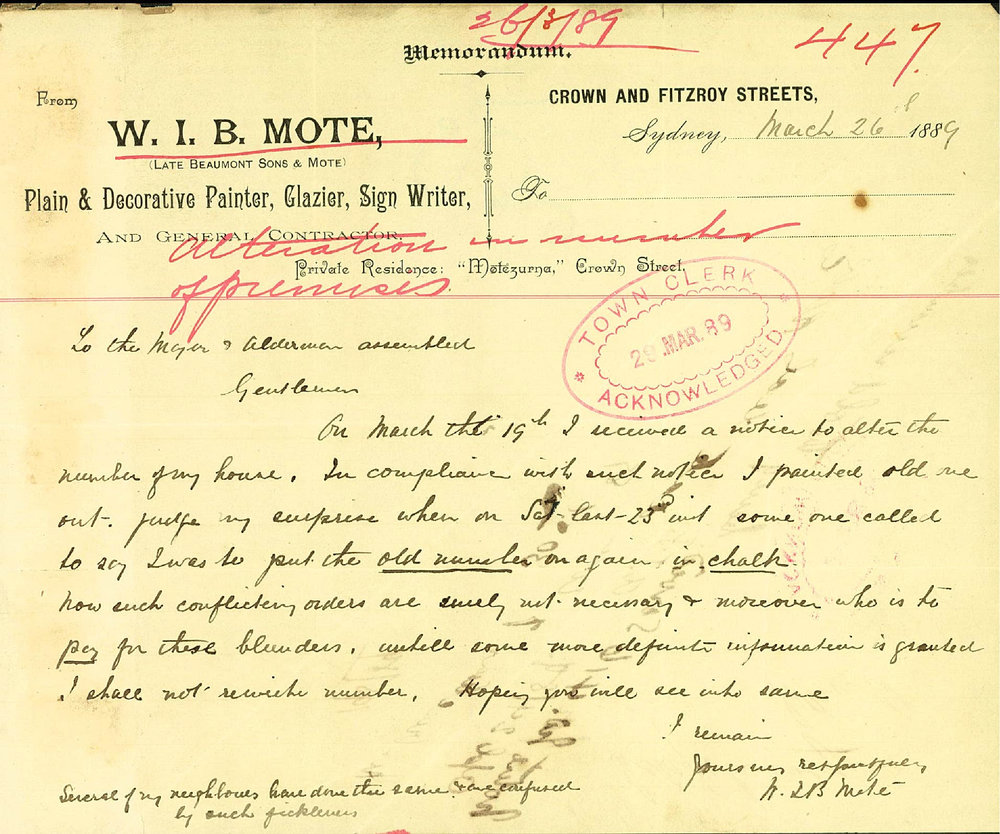 26/3/89
447.
Memorandum.
From
W. I. B. MOTE,
(LATE BEAUMONT SONS & MOTE)
Plain & Decorative Painter, Glazier, Sign Writer,
AND GENERAL CONTRACTOR,
Private Residence: "Motezurna," Crown Street,
CROWN AND FITZROY STREETS,
Sydney, March 26th 1889
To
Alteration in number
of premises.
TOWN CLERK
29.MAR.89
ACKNOWLEDGED
To the Mayor & Alderman assembled
Gentlemen
On March the 19th I received a notice to alter the
number of my house. In compliance with such notice I painted old one
out. Judge my surprise when on Sat last 23rd inst some one called
to say I was to put the old number on again in chalk
now such conflicting orders are surely not necessary & moreover who is to
pay for these blunders. untill some more definite information is granted
I shall not rewrite number. Hoping you will see into same
I remain
Yours very respectfully
W. I B Mote
Several of my neighbours have done the same & are confused
by such fickleness